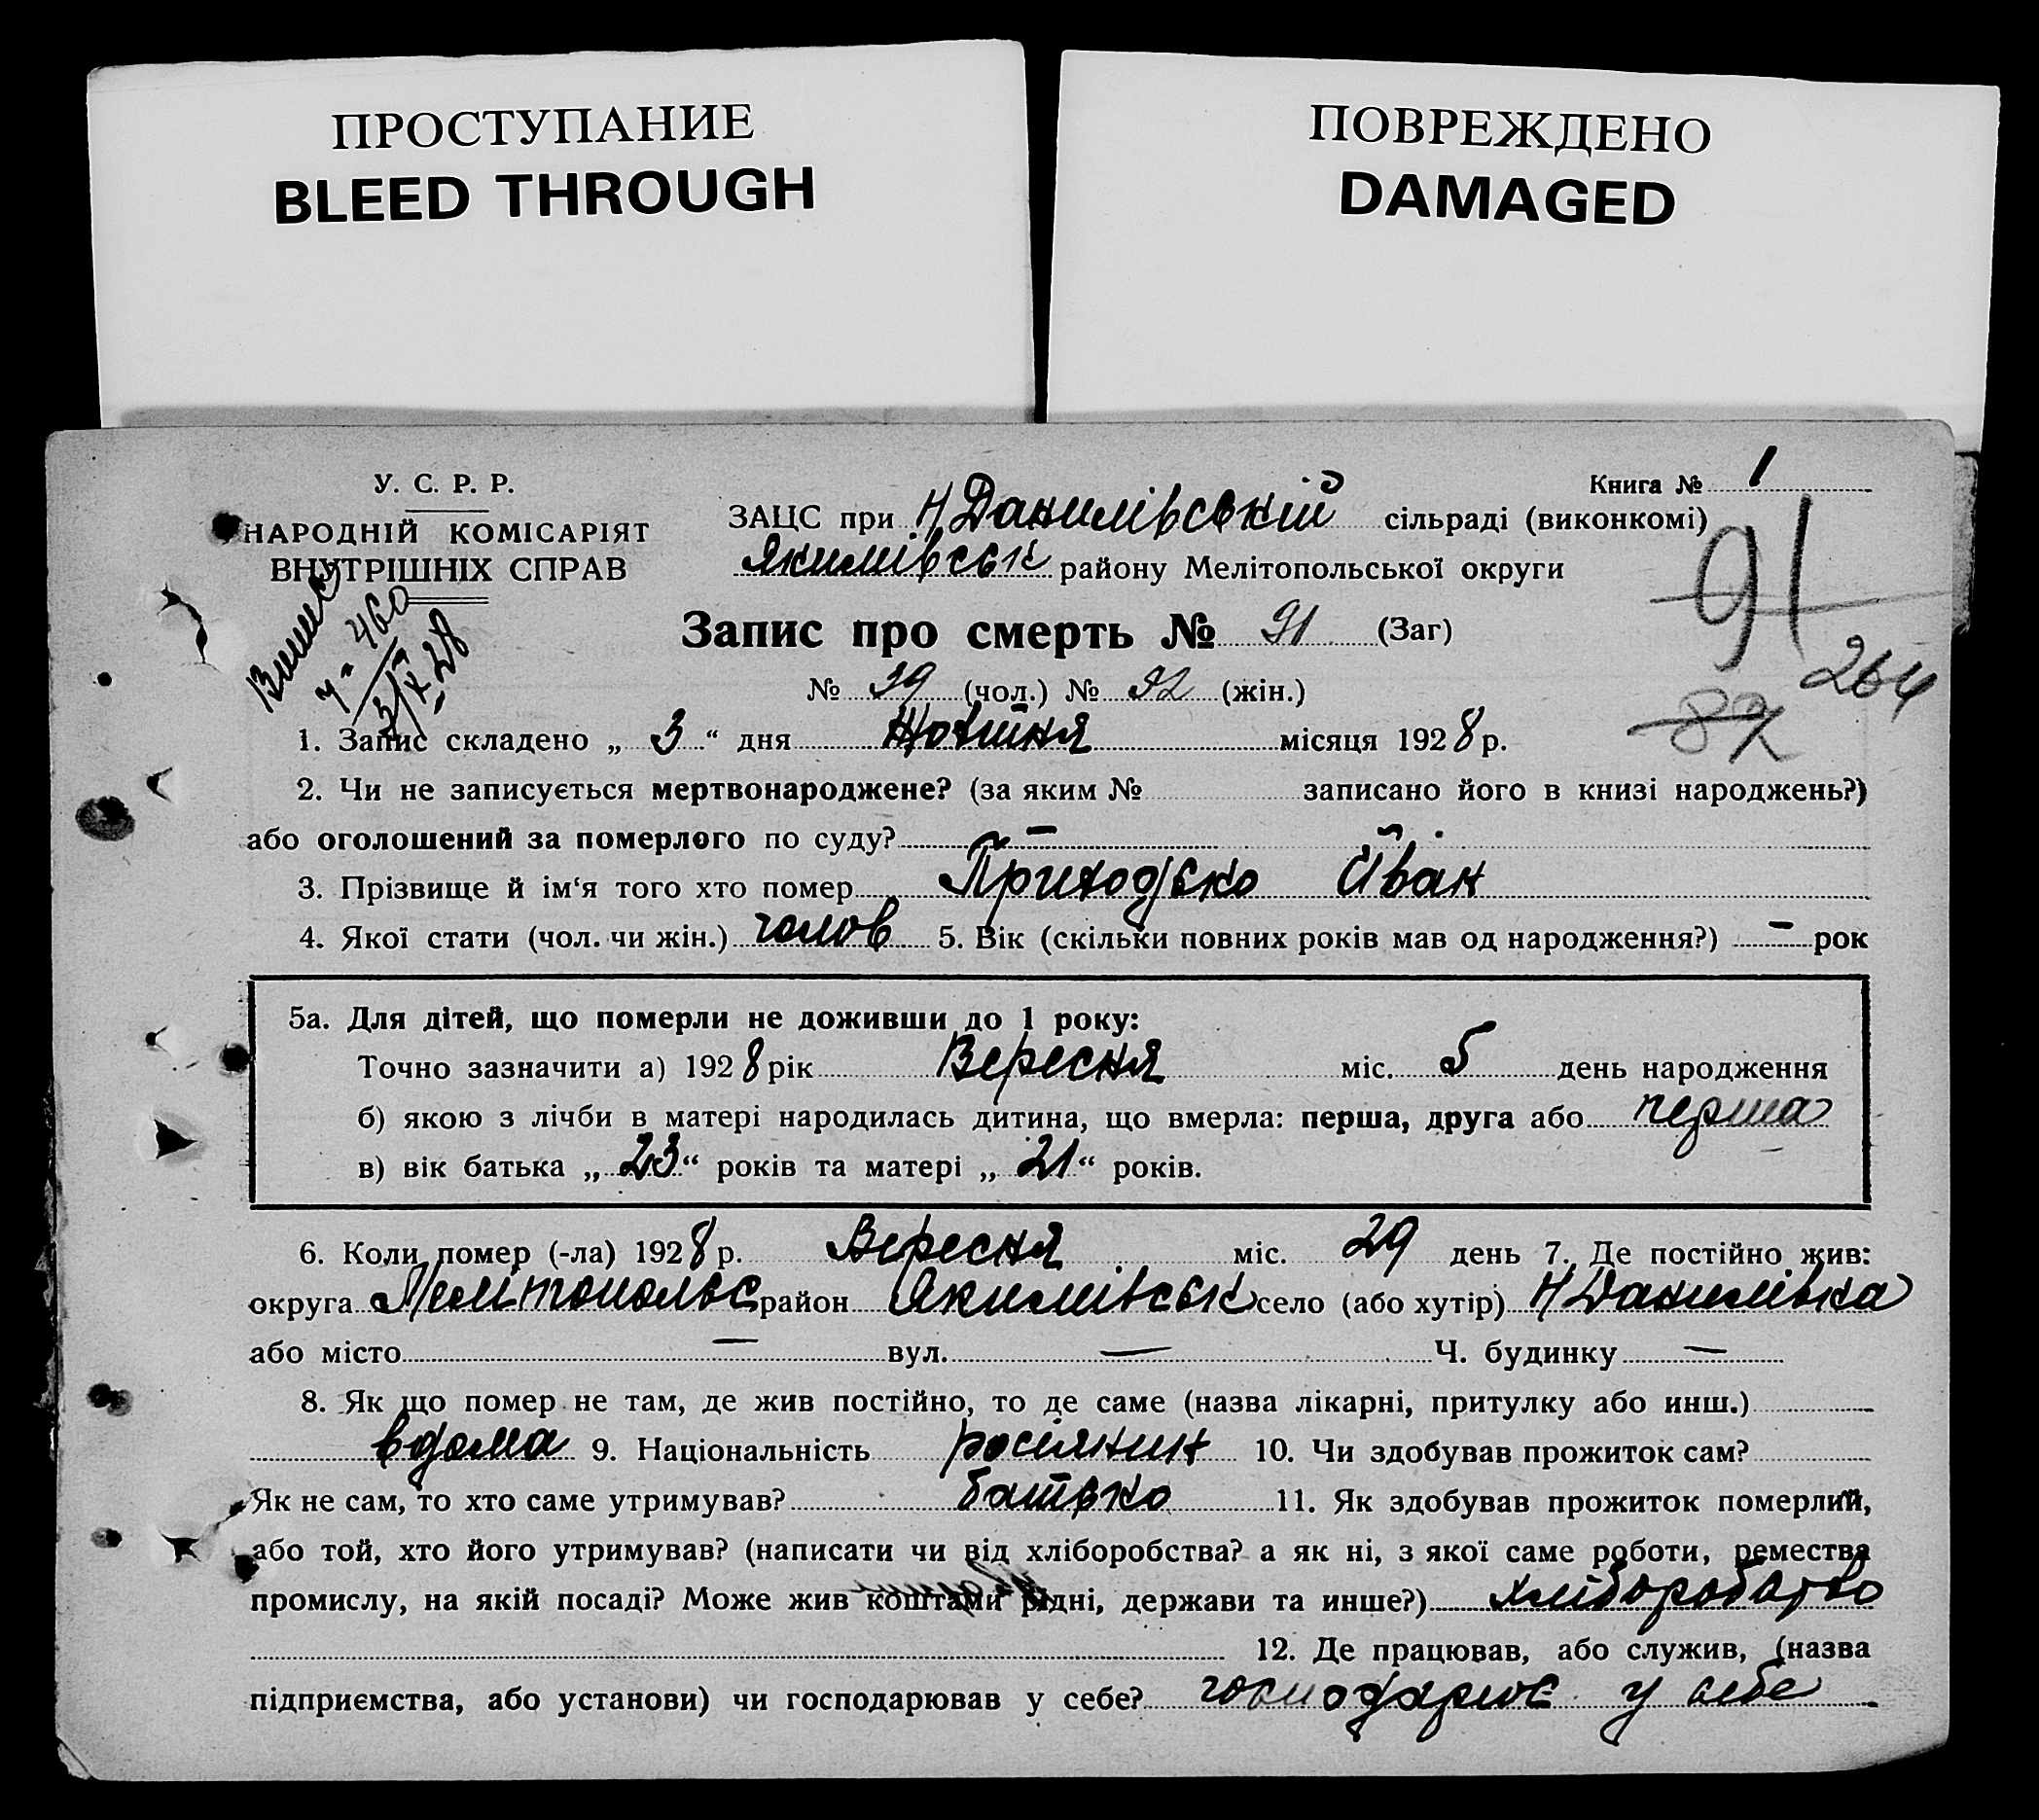 ПРОСТУПАНИЕ
BLEED THROUGH
ПОВРЕЖДЕНО
DAMAGED
У. С. Р. Р.
НАРОДНІЙ КОМІСАРІЯТ
ВНУТРІШНІХ СПРАВ
Книга № 1
ЗАЦС при Н Данилівській сільраді (виконкомі)
Якимівськ району Мелітопольської округи
91
264
87
460
3/X-28
Запис про смерть № 91 (Заг)
№ 39 (чол.) № 52 (жін.)
1. Запис складено „ 3 “ дня Жовтня місяця 1928 р.
2. Чи не записується мертвонароджене? (за яким № записано його в книзі народжень?)
або оголошений за померлого по суду? —
3. Прізвище й ім‘я того хто помер Приходько Іван
4. Якої стати (чол. чи жін.) чолов 5. Вік (скільки повних років мав од народження?) — рок
5а. Для дітей, що померли не доживши до 1 року:
Точно зазначити а) 1928 рік Вересня міс. 5 день народження
б) якою з лічби в матері народилась дитина, що вмерла: перша, друга або перша
в) вік батька „ 23 “ років та матері „ 21 “ років.
6. Коли помер (-ла) 1928 р. Вересня міс. 29 день 7. Де постійно жив:
округа Мелітопольс район Якимівськ село (або хутір) Н Данилівка
або місто — вул. — Ч. будинку —
8. Як що помер не там, де жив постійно, то де саме (назва лікарні, притулку або инш.)
вдома 9. Національність росіянин 10. Чи здобував прожиток сам?
Як не сам, то хто саме утримував? батько 11. Як здобував прожиток померлий,
або той, хто його утримував? (написати чи від хліборобства? а як ні, з якої саме роботи, ремества
промислу, на якій посаді? Може жив коштами рідні, держави та инше?) хліборобство
12. Де працював, або служив, (назва
підприємства, або установи) чи господарював у себе? господарює у себе